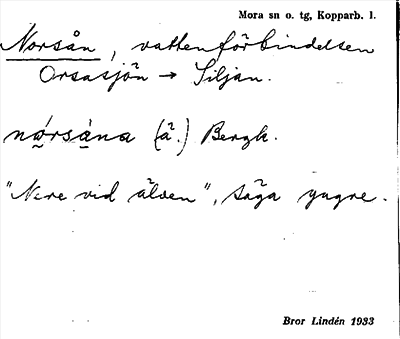 Mora sn o. tg, Kopparb. l.
Norsån, vattenförbindelsen
Orsasjön → Siljan.
nó̱rså̱na (å.) Bergk.
"Nere vid älven", säga yngre.
Bror Lindén 1933